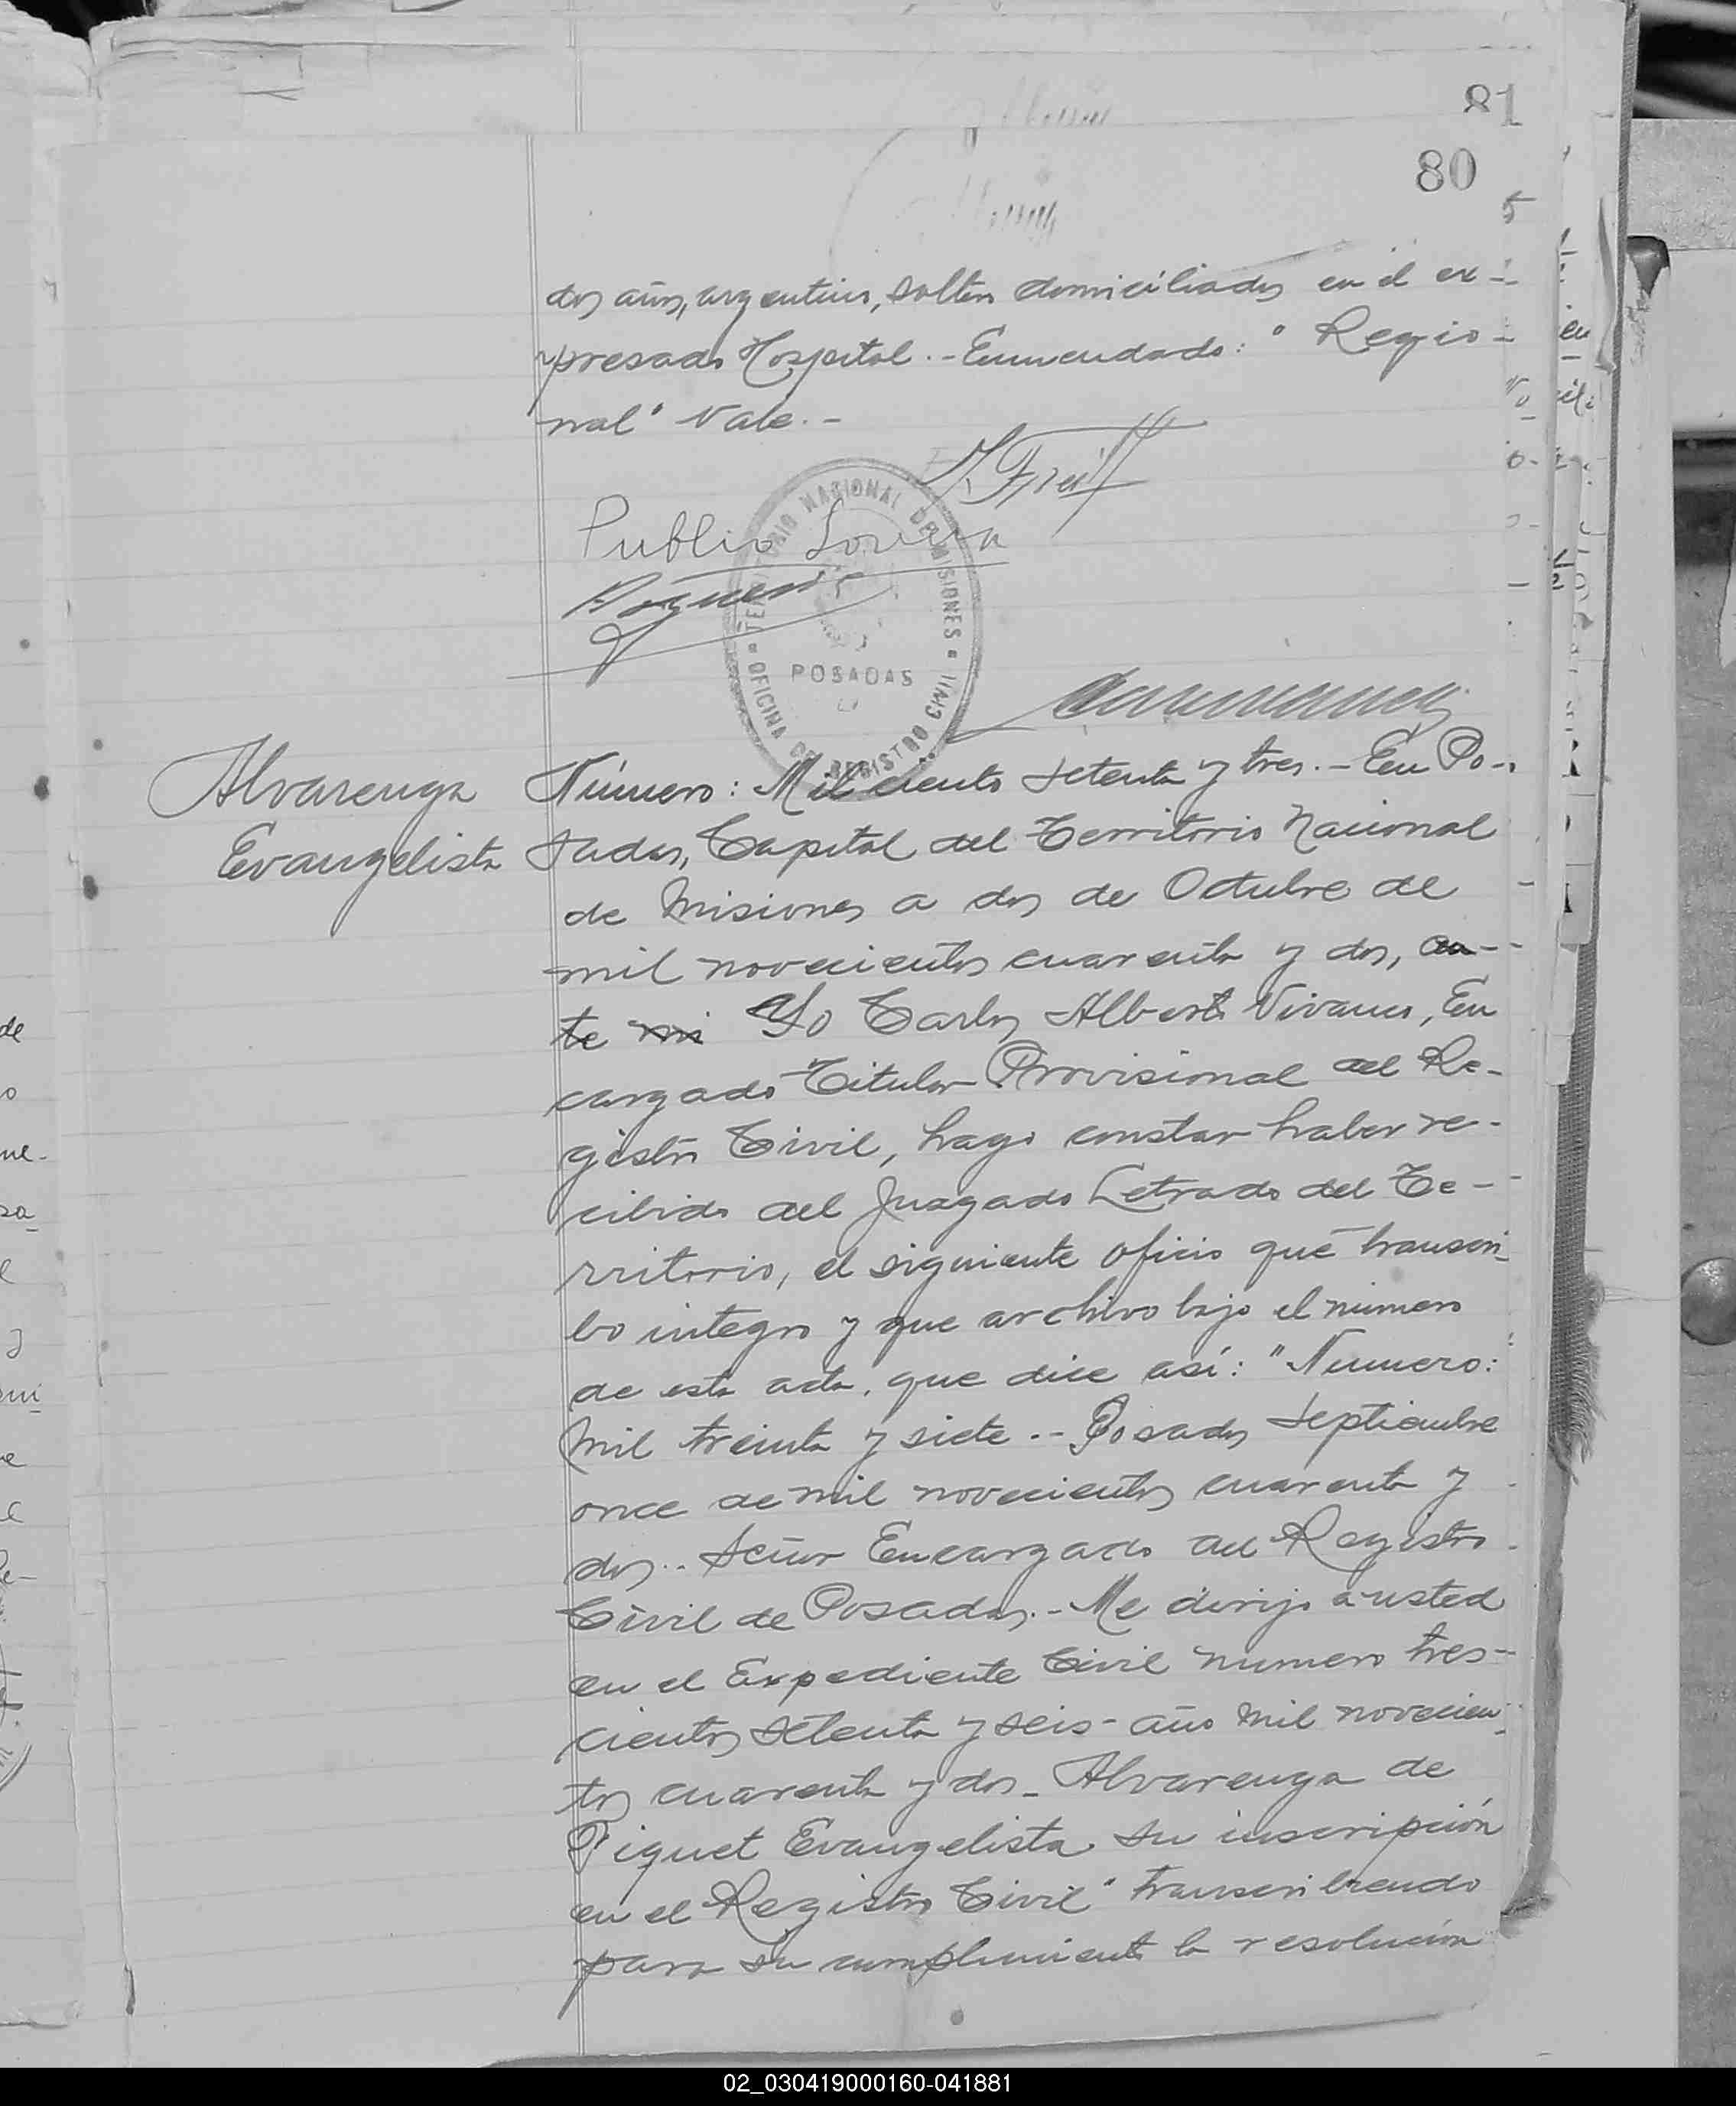 81
80
dos años, argentino, soltero domiciliados en el ex-
presado Hospital.- Enmendado: "Regio-
nal" Vale.-
Publio Lovera
TERRITORIO NACIONAL DE MISIONES
POSADAS
OFICINA DE REGISTRO CIVIL
Alvarenga
Evangelista
Número: Mil ciento setenta y tres.- En Po-
sadas, Capital del Territorio Nacional
de Misiones a dos de Octubre de
mil novecientos cuarenta y dos, an-
te mi Yo Carlos Alberto Vivanco, En
cargado Titular Provisional del Re-
gistro Civil, hago constar haber re-
cibido del Juzgado Letrado del Te-
rritorio, el siguiente oficio que transcri-
bo integro y que archivo bajo el número
de esta acta, que dice así: "Numero:
Mil treinta y siete.- Posadas Septiembre
once de mil novecientos cuarenta y
dos.. Señor Encargado del Registro
Civil de Posadas.- Me dirijo a usted
en el Expediente Civil numero tres-
cientos setenta y seis- año mil novecien-
tos cuarenta y dos- Alvarenga de
Piquet Evangelista su inscripción
en el Registro Civil" transcribiendo
para su cumplimiento la resolución
02_030419000160-041881